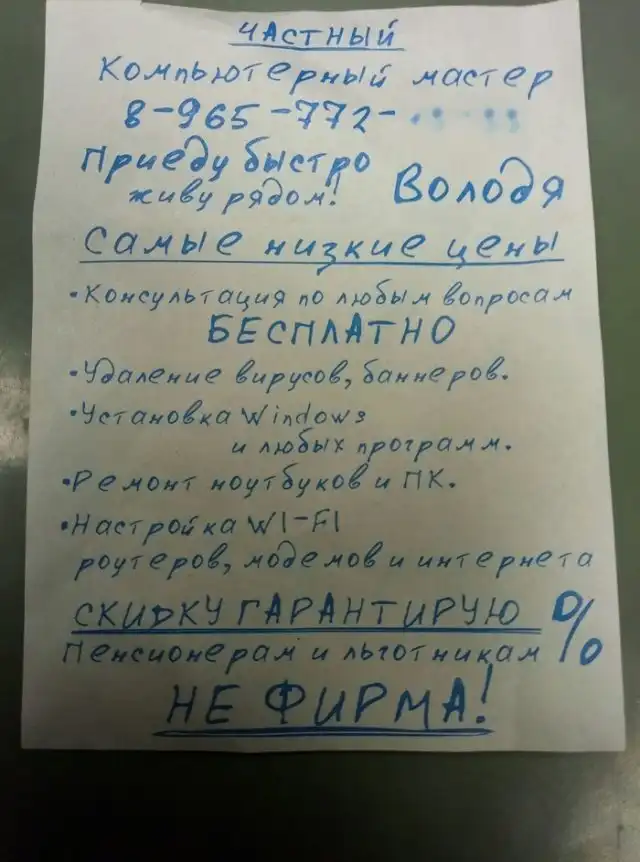 ЧАСТНЫЙ
Компьютерный мастер
8-965-772-
Приеду быстро
живу рядом!
Володя
Самые низкие цены
•Консультация по любым вопросам
БЕСПЛАТНО
•Удаление вирусов, баннеров.
•Установка Windows
и любых программ.
•Ремонт ноутбуков и ПК.
•Настройка WI-FI
роутеров, модемов и интернета
СКИДКУ ГАРАНТИРУЮ %
Пенсионерам и льготникам
НЕ ФИРМА!